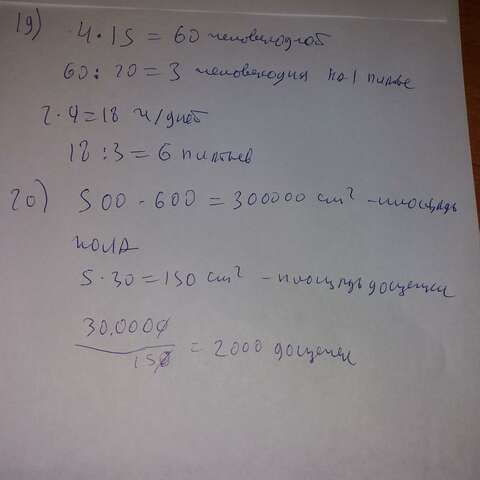 19) 4 · 15 = 60 человекодней
60 : 20 = 3 человекодня на 1 платье
2 · 9 = 18 ч/дней
18 : 3 = 6 платьев
20) 500 · 600 = 300000 см² - площадь
пола
5 · 30 = 150 см² - площадь дощечки
300000 / 150 = 2000 дощечек